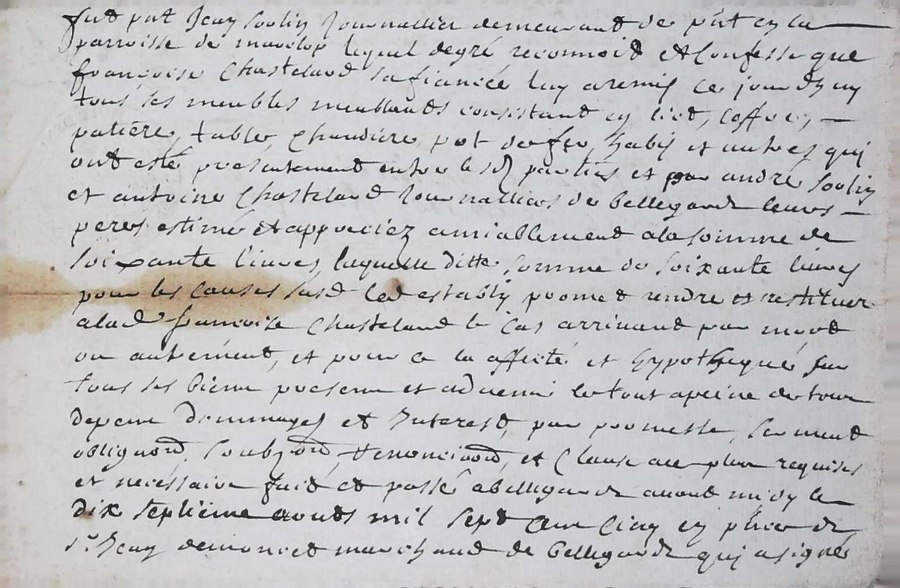 fut pnt Jean Soulin Journallier demeurant de pnt en la
parroisse de lequel degré reconnoid et Confesse que
françoise Chastelard sa fiancée luy a remis ce jourdhuy
tous ses meubles meublants consistant en lict, Coffre, —
patière, table, Chaudière, pot de fer, habis et autres qui
ont esté presentement entre lesd parties et par andré Soulin
et antoine Chastelard Journalliers de bellegarde leurs —
peres estimés et appreciez amiablement a la somme de
soixante livres, laquelle ditte somme de soixante livres
pour les causes susd led estably promet rendre et restituer
a lad françoise Chastelard le Cas arrivant par mort
ou autrement, et pour ce la affecté et hypothequé sur
tous ses biens presens et advenir le tout a peine de tous
depens dommages et Interest, par promesse, serment
obligaon, soubzon, renonciaon, et Clause au plus requises
et nécessaire faict et passé a bellegarde avant midy le
dix septieme aoust mil sept Cent Cinq en pnce de
sr Jean marchand de bellegarde qui a signé